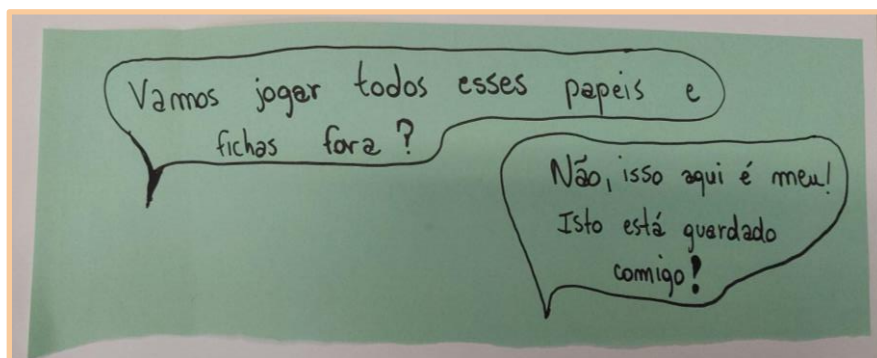 Vamos jogar todos esses papeis e
fichas fora?
Não, isso aqui é meu!
Isto está guardado
comigo!